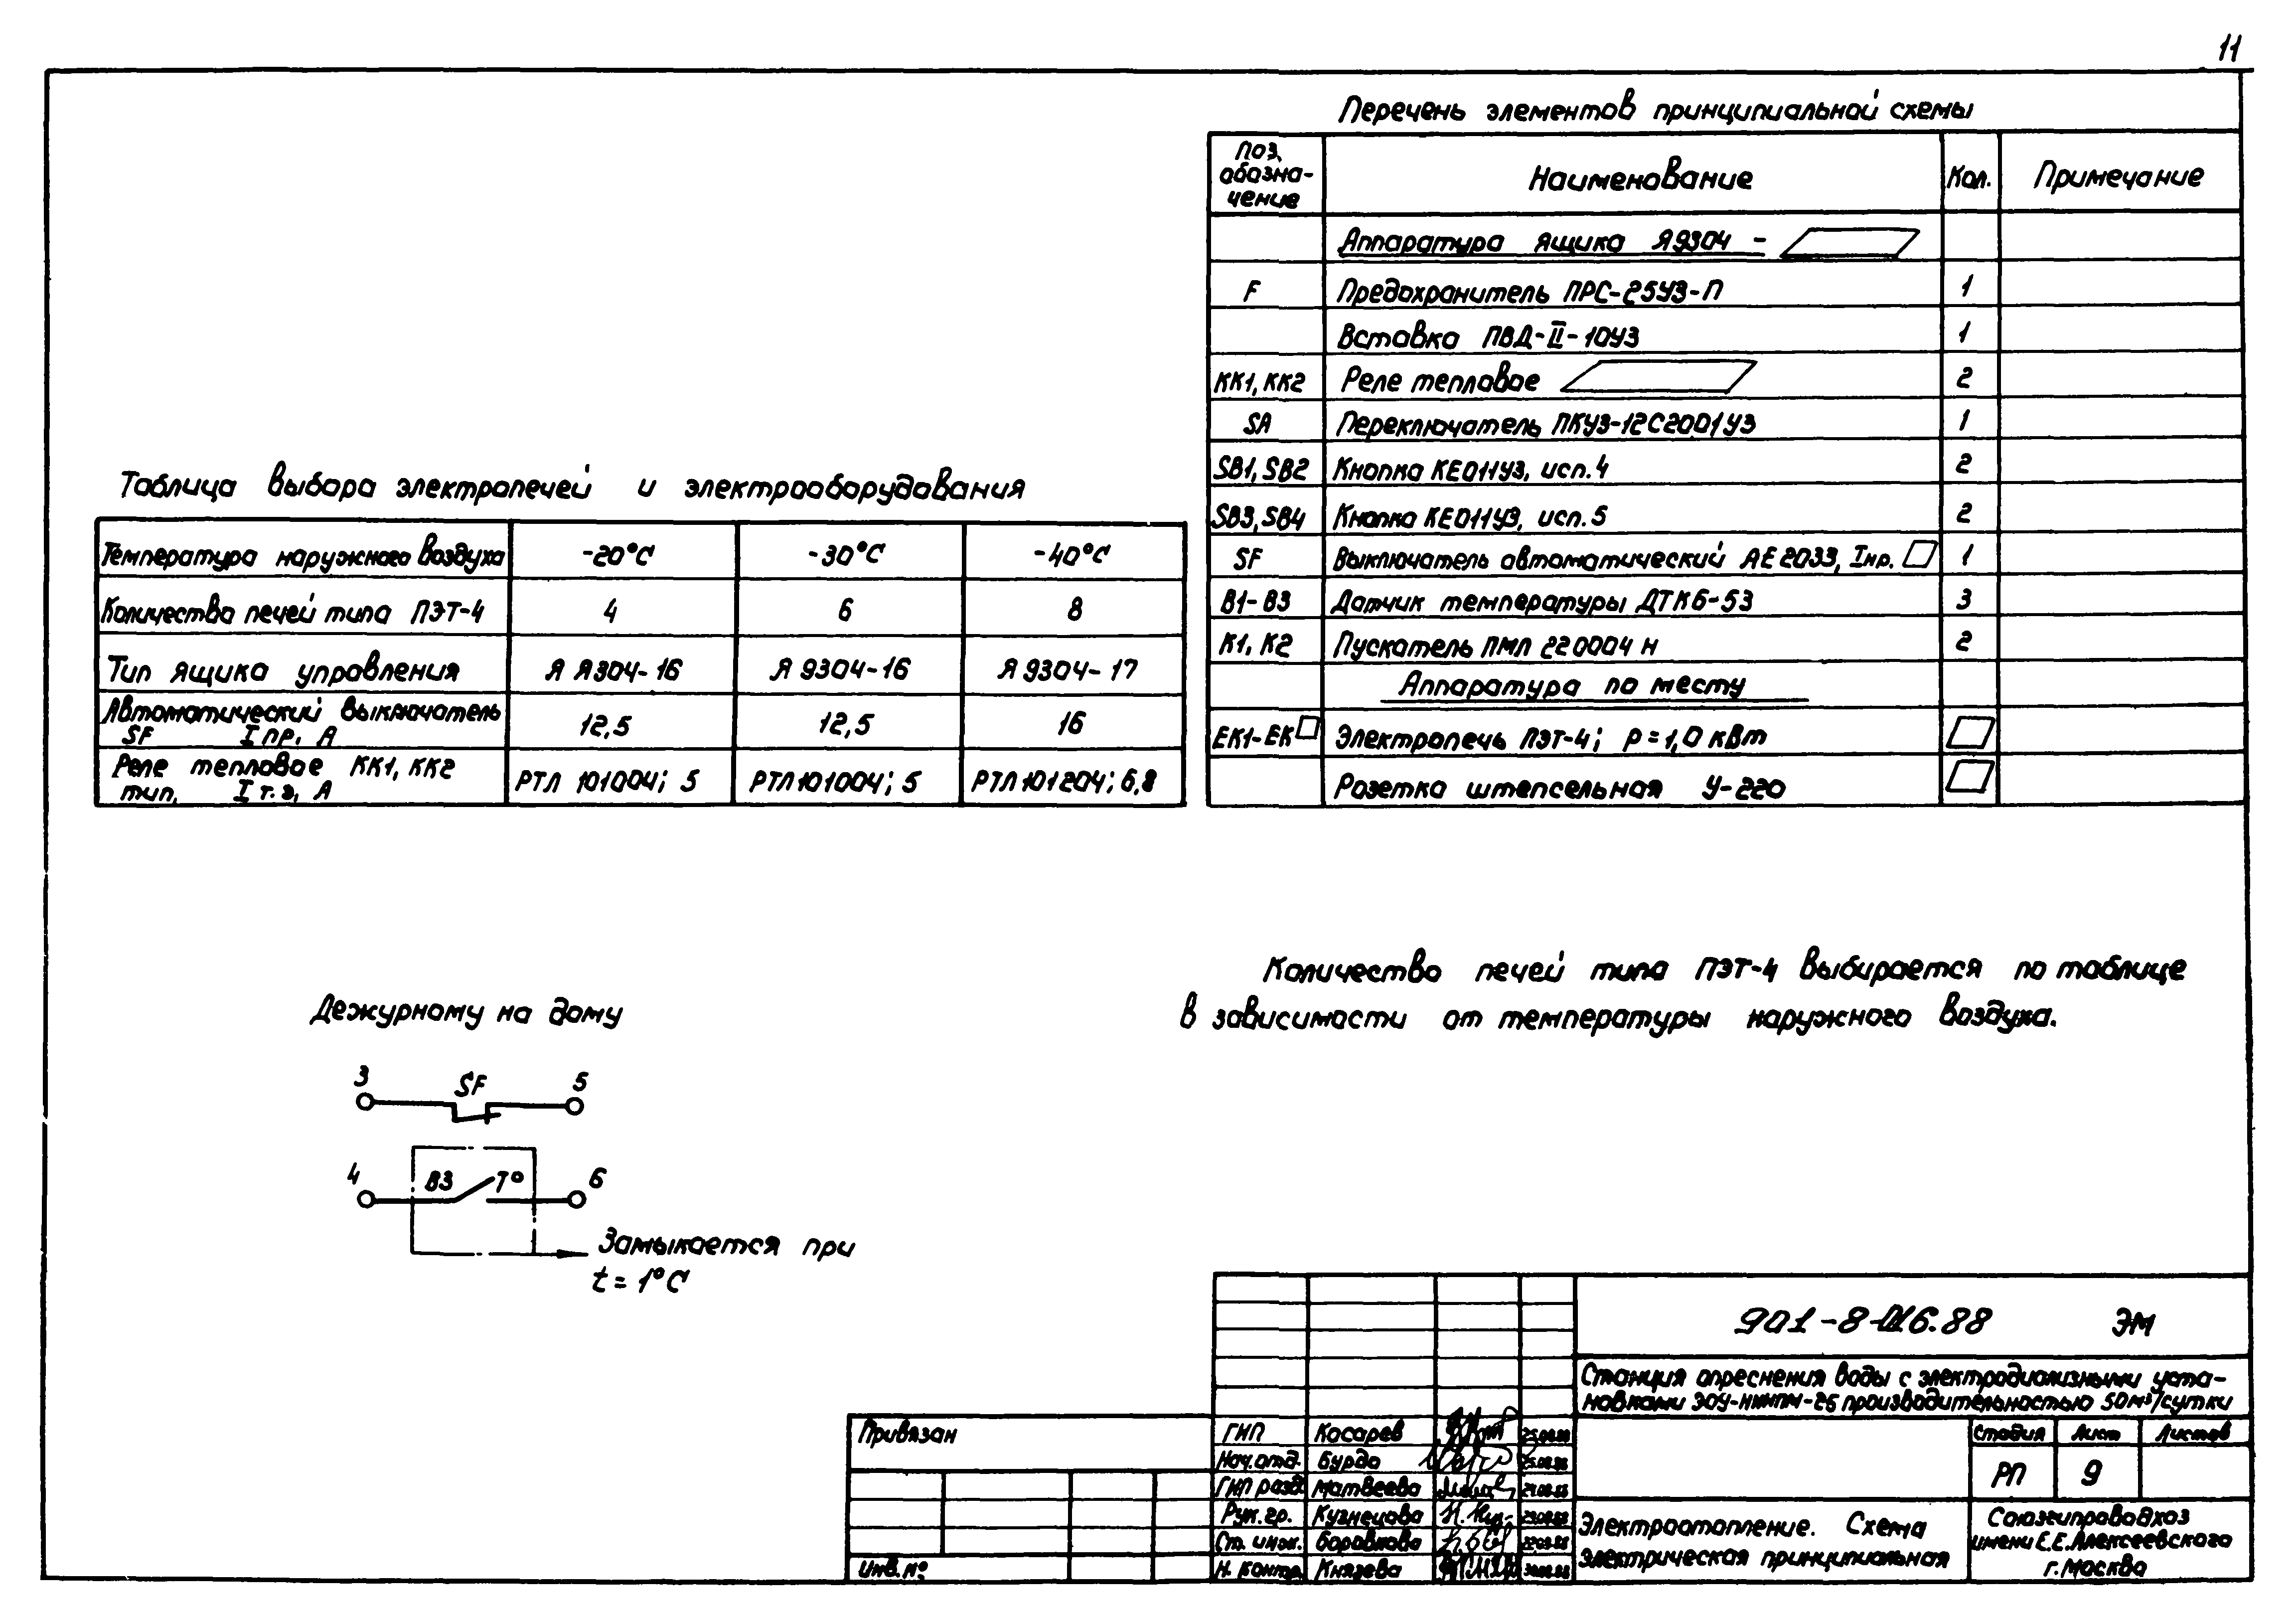 11
Перечень элементов принципиальной схемы
Поз. обозна-чение Наименование Кол. Примечание
Аппаратура ящика Я9304 -
F Предохранитель ПРС-25У3-П 1
Вставка ПВД-II-10У3 1
КК1, КК2 Реле тепловое 2
SA Переключатель ПКУ3-12С2001У3 1
SB1, SB2 Кнопка КЕ011У3, исп. 4 2
SB3, SB4 Кнопка КЕ011У3, исп. 5 2
SF Выключатель автоматический АЕ2033, Iнр. 1
В1-В3 Датчик температуры ДТКБ-53 3
К1, К2 Пускатель ПМЛ 220004 Н 2
Аппаратура по месту
ЕК1-ЕК Электропечь ПЭТ-4; Р=1,0 кВт
Розетка штепсельная У-220
Таблица выбора электропечей и электрооборудования
Температура наружного воздуха -20°С -30°С -40°С
Количества печей типа ПЭТ-4 4 6 8
Тип ящика управления Я Я304-16 Я 9304-16 Я 9304-17
Автоматический выключатель
SF Iпр. А 12,5 12,5 16
Реле тепловое КК1, КК2
тип, Iт.э, А РТЛ 101004; 5 РТЛ101004; 5 РТЛ101204; 6,8
Количество печей типа ПЭТ-4 выбирается по таблице
в зависимости от температуры наружного воздуха.
Дежурному на дому
3 SF 5
4 В3 Т° 6
Замыкается при
t = 1°С
901-8-016.88 ЭМ
Станция опреснения воды с электродиализными уста-
новками ЭОУ-НИИПМ-25 производительностью 50м³/сутки
Привязан
Инв. №
ГИП Косарев 25.08.88
Нач. отд. Бурдо 25.08.88
ГИП разд. Матвеева
Рук. гр. Кузнецова 23.08.88
Ст. инж. Боровкова
Н. контр. Князева
Стадия Лист Листов
РП 9
Электроотопление. Схема
электрическая принципиальная
Союзгипроводхоз
имени Е.Е.Алексеевского
г. Москва